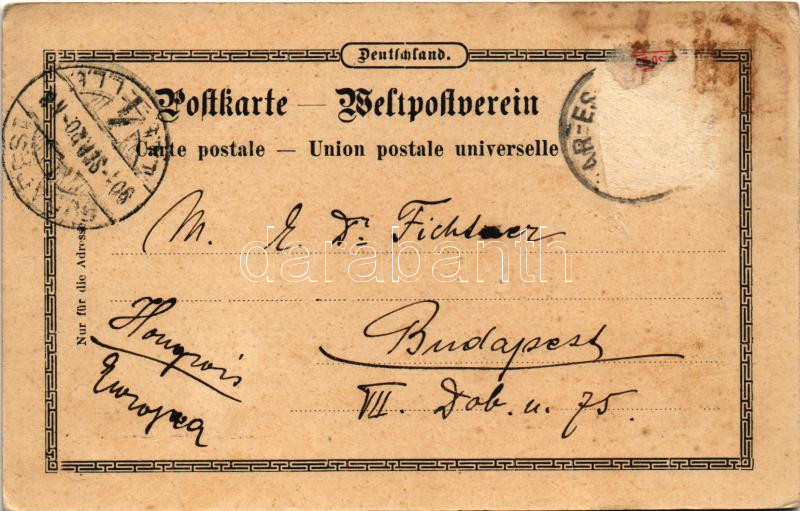 Deutschland.
Postkarte — Weltpostverein
Carte postale — Union postale universelle
AR-ES
Nur für die Adresse.
M. E. Dr. Fichtner
darabanth
Budapest
VII. Dob. u. 75.
Hongrois
Europea